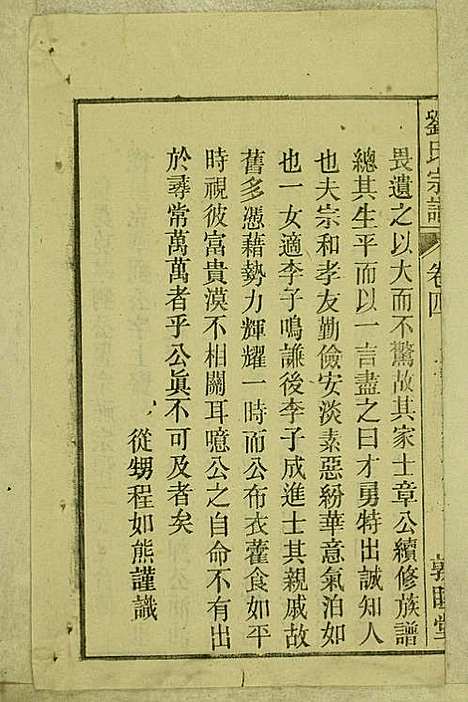 劉氏宗譜
卷四
敦睦堂
畏遺之以大而不驚故其家士章公續修族譜
總其生平而以一言盡之曰才勇特出誠知人
也夫宗和孝友勤儉安淡素惡紛華意氣泊如
也一女適李子鳴謙後李子成進士其親戚故
舊多憑藉勢力輝耀一時而公布衣藿食如平
時視彼富貴漠不相關耳噫公之自命不有出
於尋常萬萬者乎公眞不可及者矣
從甥程如熊謹識